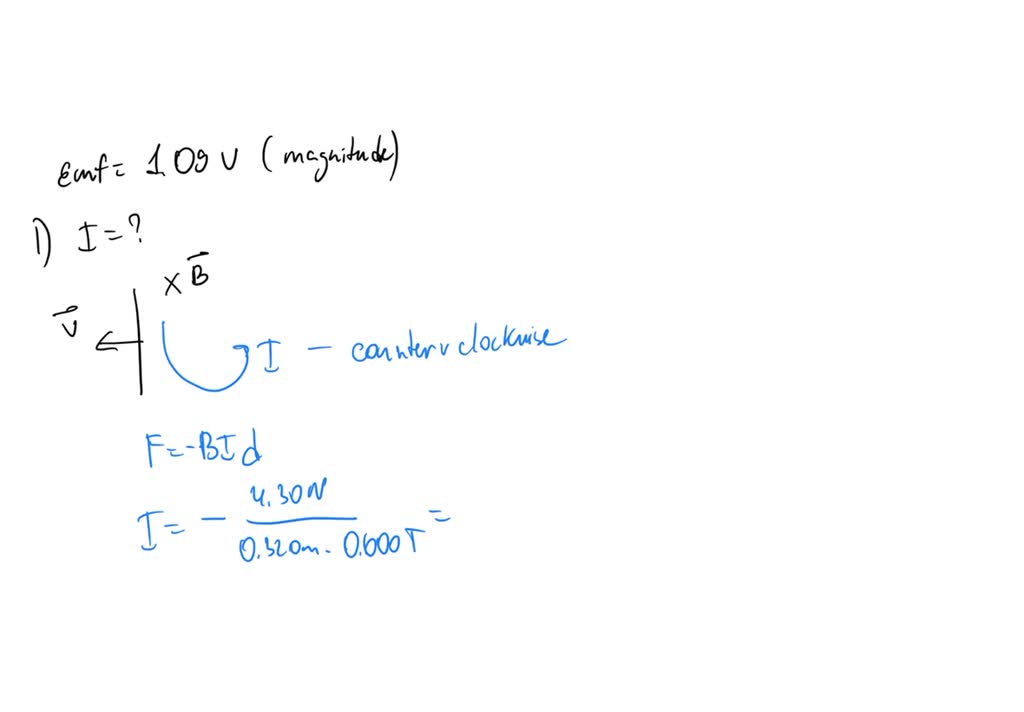 Emf = 1.09 V (magnitude)
1) I = ?
x B⃗
v⃗
I – counter clockwise
F = -BId
I = - 4.30N / 0.320m · 0.600T =